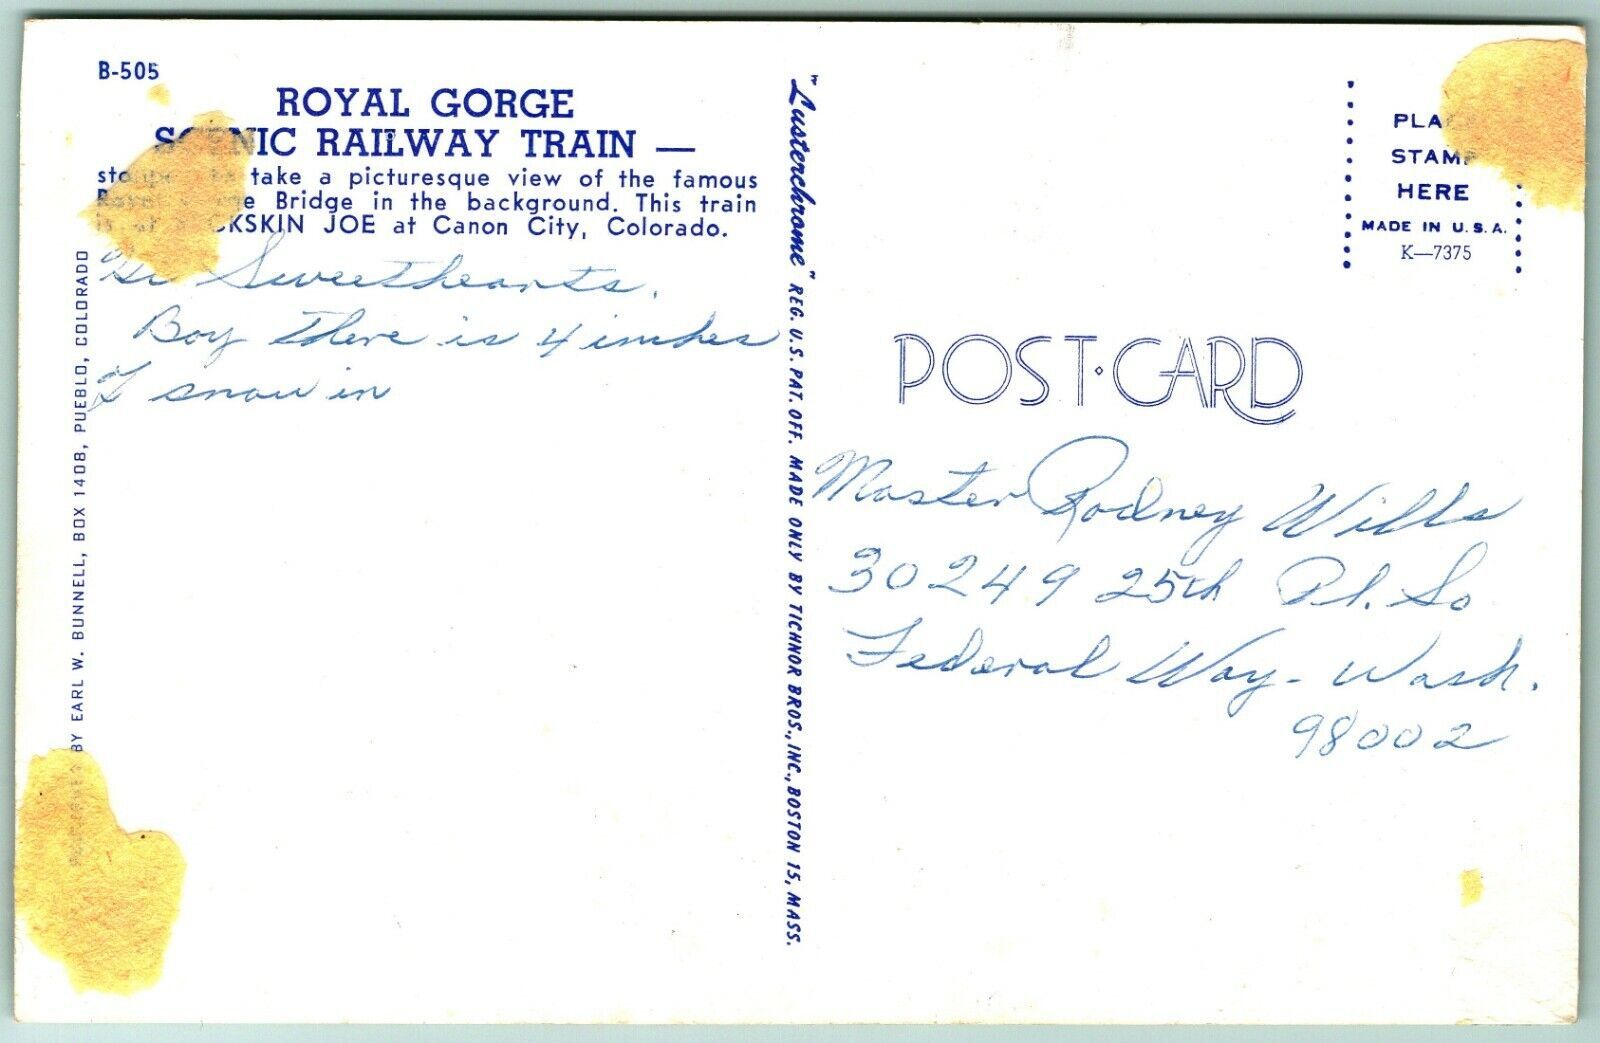 B-505
ROYAL GORGE
SCENIC RAILWAY TRAIN —
take a picturesque view of the famous
Bridge in the background. This train
CKSKIN JOE at Canon City, Colorado.
Hi Sweethearts,
Boy there is 4 inches
of snow in
BY EARL W. BUNNELL, BOX 1408, PUEBLO, COLORADO
"Lusterchrome" REG. U.S. PAT. OFF. MADE ONLY BY TICHNOR BROS., INC., BOSTON 15, MASS.
PLA
STAMP
HERE
MADE IN U.S.A.
K—7375
POST·CARD
Master Rodney Wills
30249 25th Pl. So
Federal Way - Wash.
98002